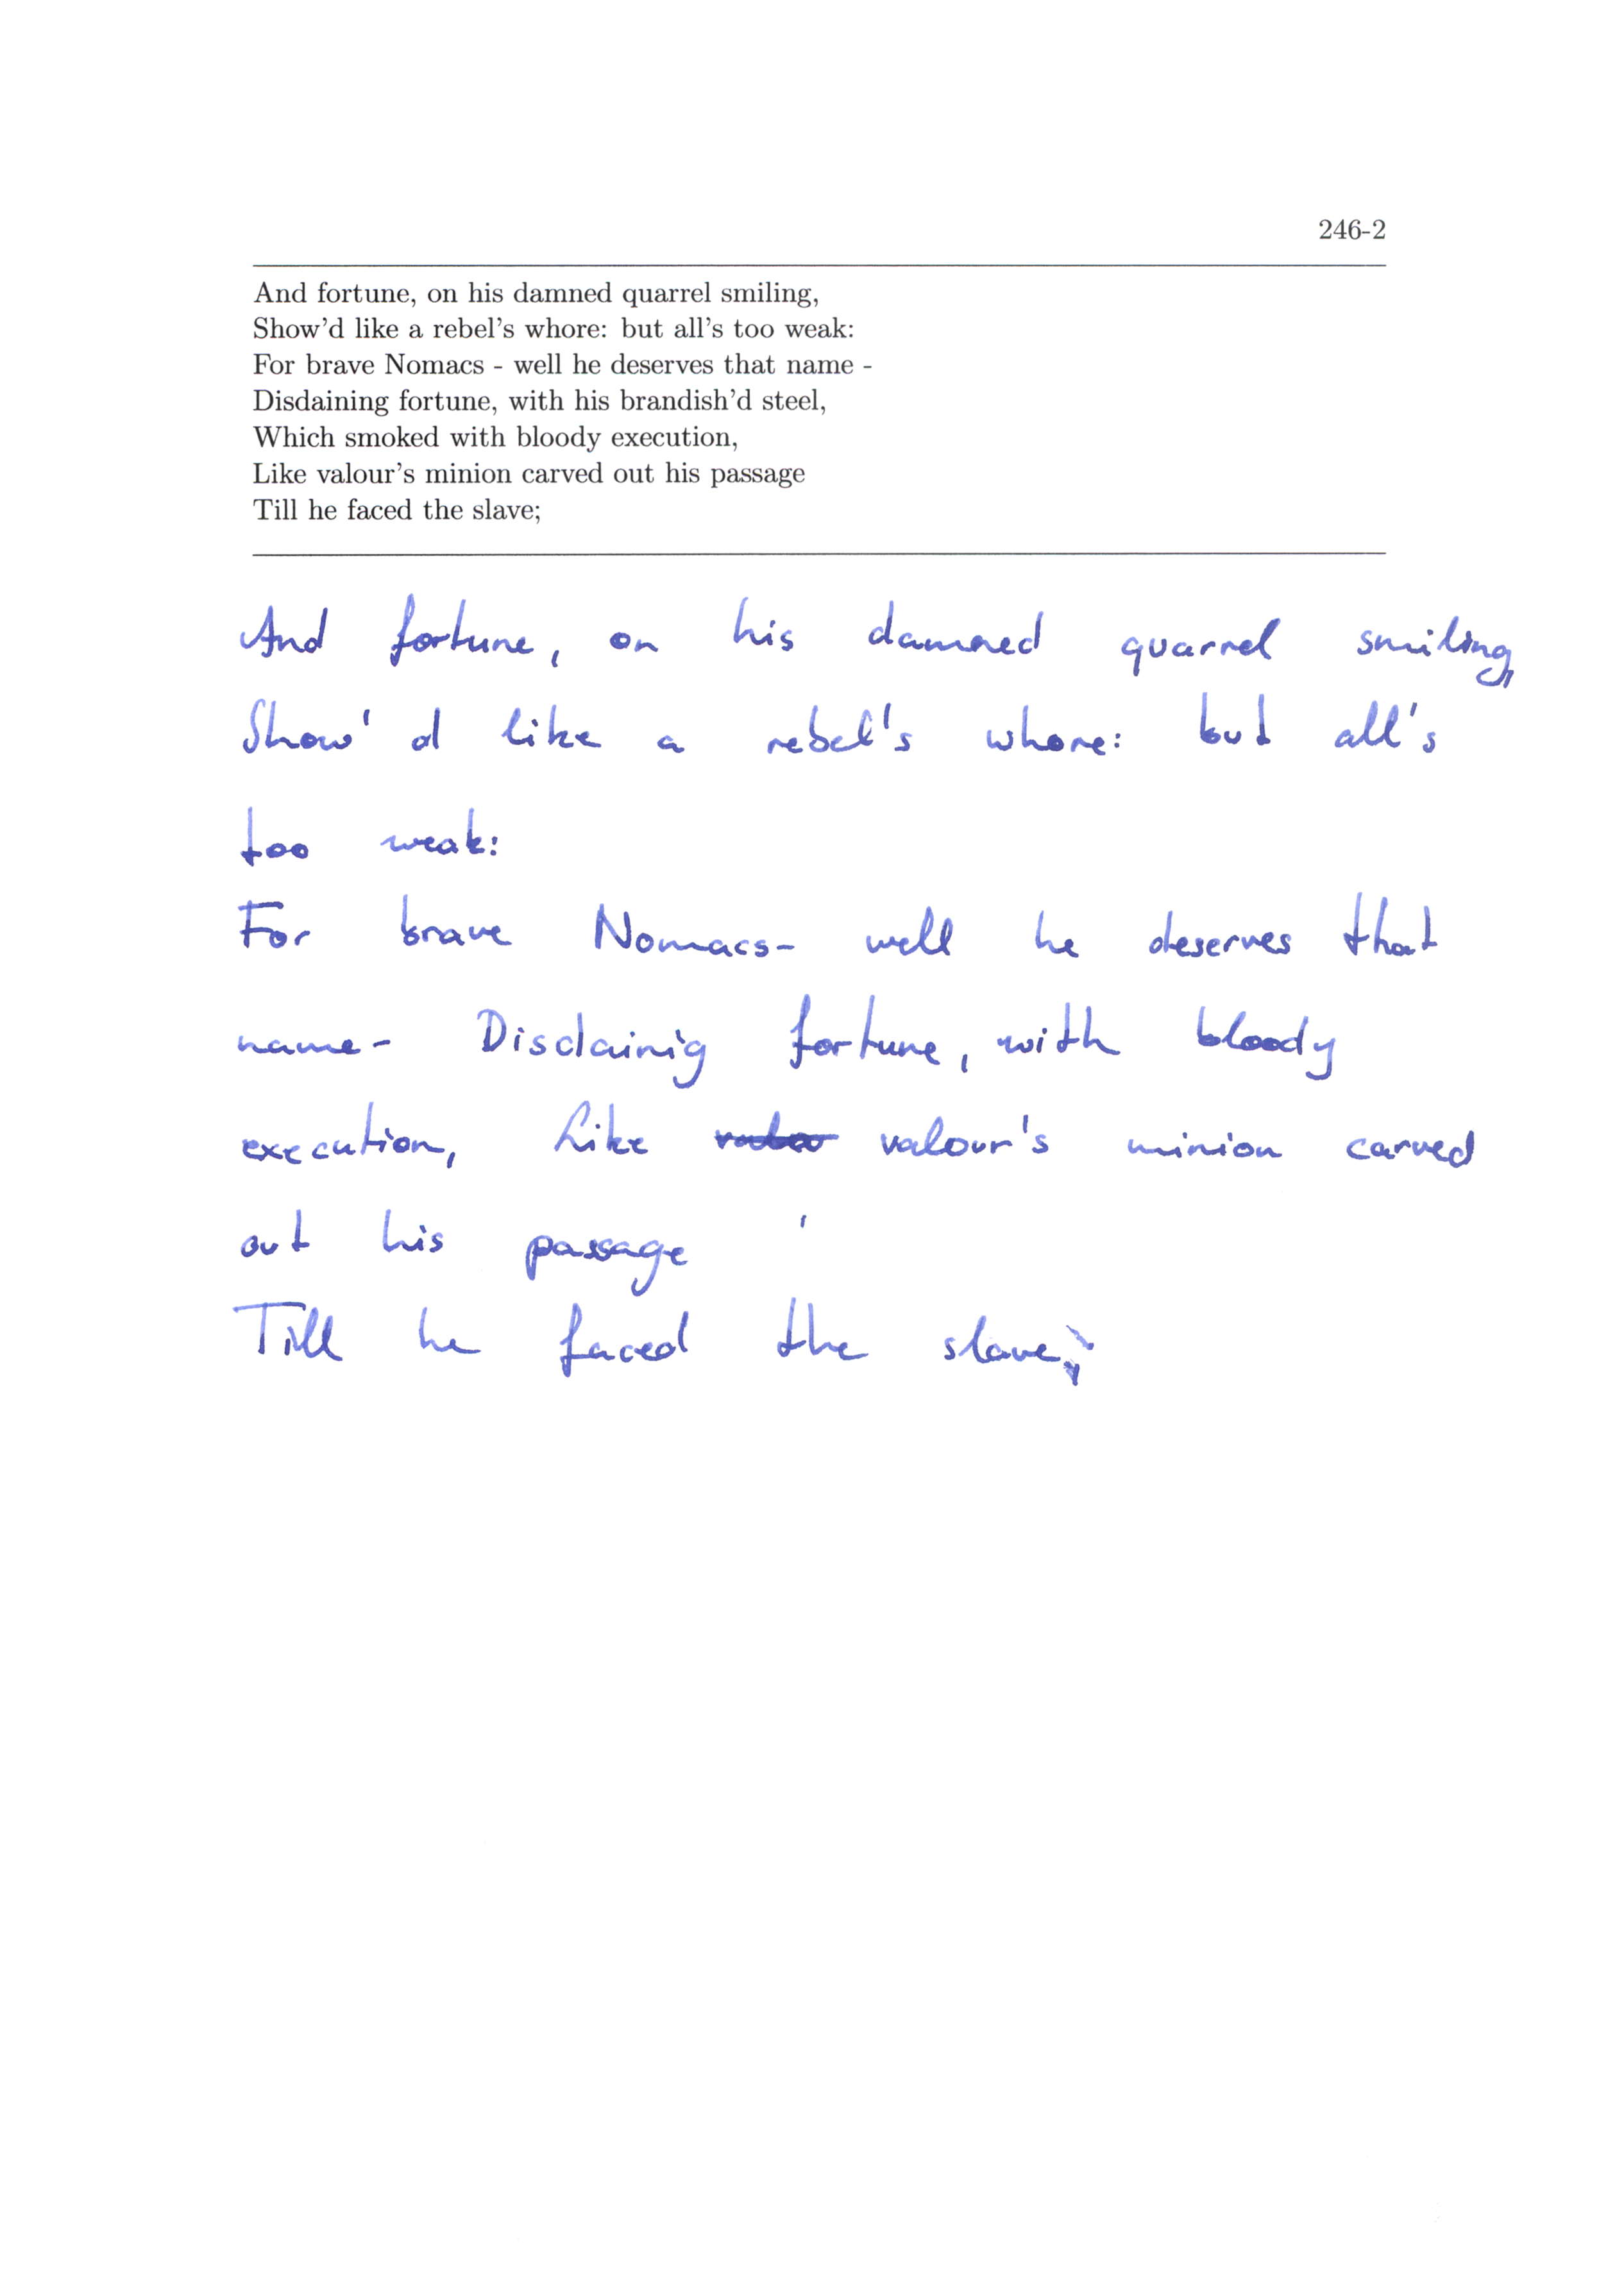 246-2
And fortune, on his damned quarrel smiling,
Show'd like a rebel's whore: but all's too weak:
For brave Nomacs - well he deserves that name -
Disdaining fortune, with his brandish'd steel,
Which smoked with bloody execution,
Like valour's minion carved out his passage
Till he faced the slave;
And fortune, on his damned quarrel smiling,
Show' d like a rebel's whore: but all's
too weak:
For brave Nomacs- well he deserves that
name- Disdainig fortune, with bloody
execution, Like valour's minion carved
out his passage
Till he faced the slave;